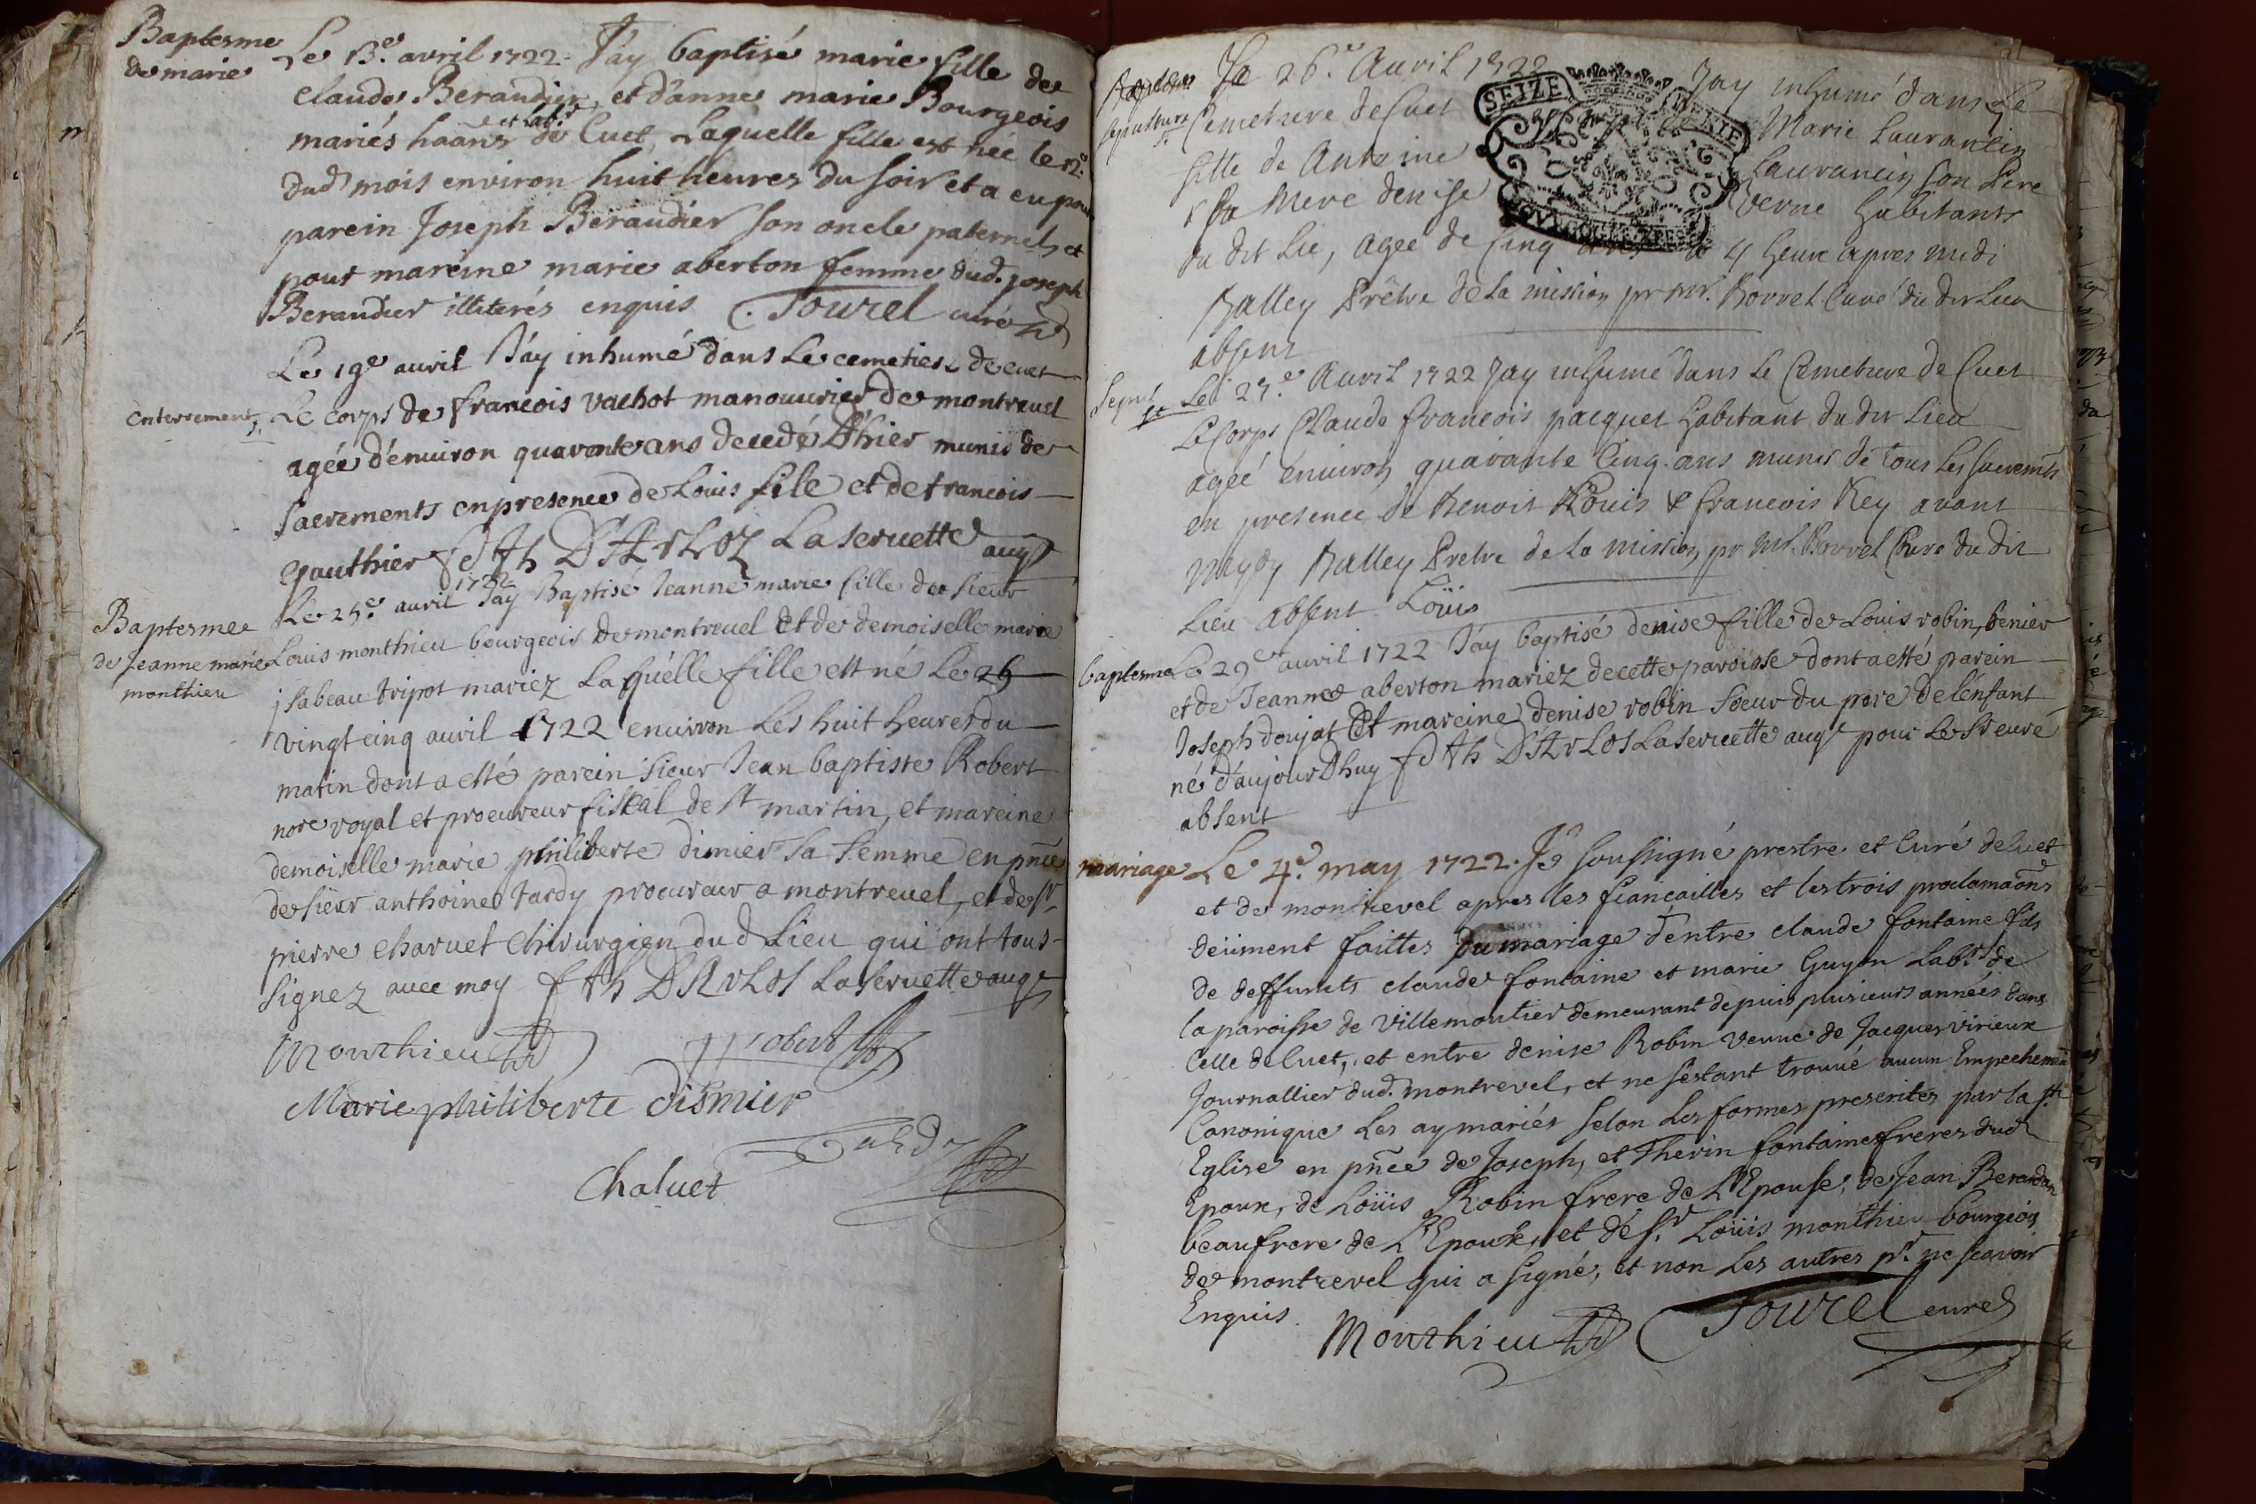 Baptesme
de marie
Le 13.e avril 1722. J'ay baptisé marie fille de
claude Beraudier, et d'anne marie Bourgeois
mariés haãns et lab.rs de Cuet, Laquelle fille est née le 12.e
dud mois environ huit heures du soir et a eu pour
parein Joseph Beraudier son oncle paternel, et
pour mareine marie aberton femme dud. joseph
Beraudier illiterés enquis C. Tourel curé
Enterrement
Le 19e avril J'ay inhumé dans Le cemetiere de cuet
Le corps de francois vachot manouurier de montreuel
agée d'enuiron quarante ans decedé D'hier munis de
sacrements en presence de Louis file et de francois
gauthier f Ath DARLOZ La seruette aug
Baptesme
de Jeanne marie
monthieu
Le 25e. avril 1722 J'ay Baptisé Jeanne marie fille de sieur
Louis monthieu bourgeois de montreuel et de demoiselle marie
jsabeau tripot mariez Laquelle fille est né Le 25
vingt cinq auril 1722 enuiron Les huit heures du
matin dont a esté parein sieur Jean baptiste Robert
nore royal et procureur fiscal de st martin, et mareine
demoiselle marie philiberte dimier sa femme en pñce
de sieur anthoine tardy procureur a montreuel, et de sr
pierre charuet chirurgien dud Lieu qui ont tous
signez auec moy f Ath DARLOS La seruette aug
Monthieu
Robert
Marie philiberte dismier
Tardy
Chaluet
sepulture
Le 26.e Auril 1722 Jay inhumé dans Le
Cemetiere de Cuet Marie Laurancin
fille de Antoine Laurancin son Pere
& sa Mere denise Verne habitants
du dit Lie, agée de Cinq ans a 4 heure apres midi
Balley Prêtre de la mission pr mr. Borrel Curé du dit Lieu
absent
SEIZE DENIE
Sepul
Le 27.e Auril 1722 Jay inhumé dans Le Cemetiere de Cuet
Le Corps Claude francois pacquet habitant du dit Lieu
ageé enuiron quarante Cinq ans munis de tous Les sacremts
en presence de Benoit Louis & francois Rey auant
midy Balley Pretre de la mission, pr Mr. Borrel Cure du dit
Lieu absent Loüis
baptesme
Le 29e auril 1722 J'ay baptisé denise fille de Louis robin, benier
et de Jeanne aberton mariez de cette paroisse dont a esté parein
Joseph doujat Et mareine denise robin soeur du pere de l'enfant
né d'aujourdhuy f Ath DARLOS La seruette augr pour Le sr curé
absent
mariage
Le 4.e may 1722. Je soussigné prestre et Curé de Cuet
et de montrevel apres les fiancailles et les trois proclamaõns
deüment faittes du mariage d'entre claude fontaine fils
de deffunts claude fontaine et marie Guyon Lab.rs de
la paroisse de Villemoutier demeurant depuis plusieurs années dans
Celle de Cuet, et entre denise Robin veuue de Jacques virieux
Journallier dud. montrevel, et ne s'estant trouué aucun Empechement
Canonique Les ay mariés selon Les formes prescrites par la ste
Eglise en pñce de Joseph, et Therin fontaine freres dud
Epoux, de Loüis Robin frere de L'Epouse, de Jean Berardan
beaufrere de L'Epoux, et de sr. Loüis monthieu bourgeois
de montrevel qui a signé, et non Les autres pr. ne scavoir
Enquis.
Monthieu
Tourel curé